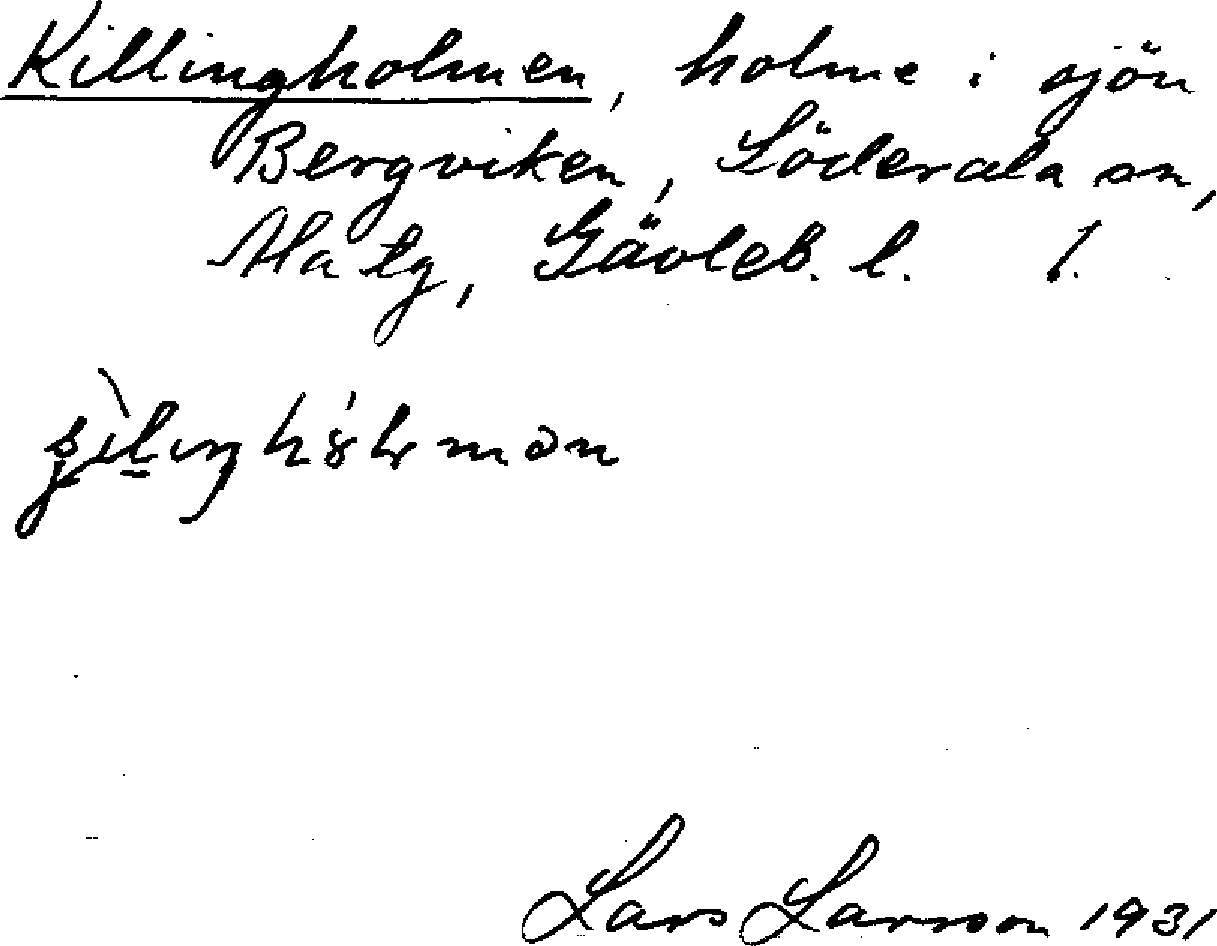 Killingholmen, holme i sjön
Bergviken, Söderala sn,
Ala tg, Gävleb. l. 1.
Lars Larsson 1931